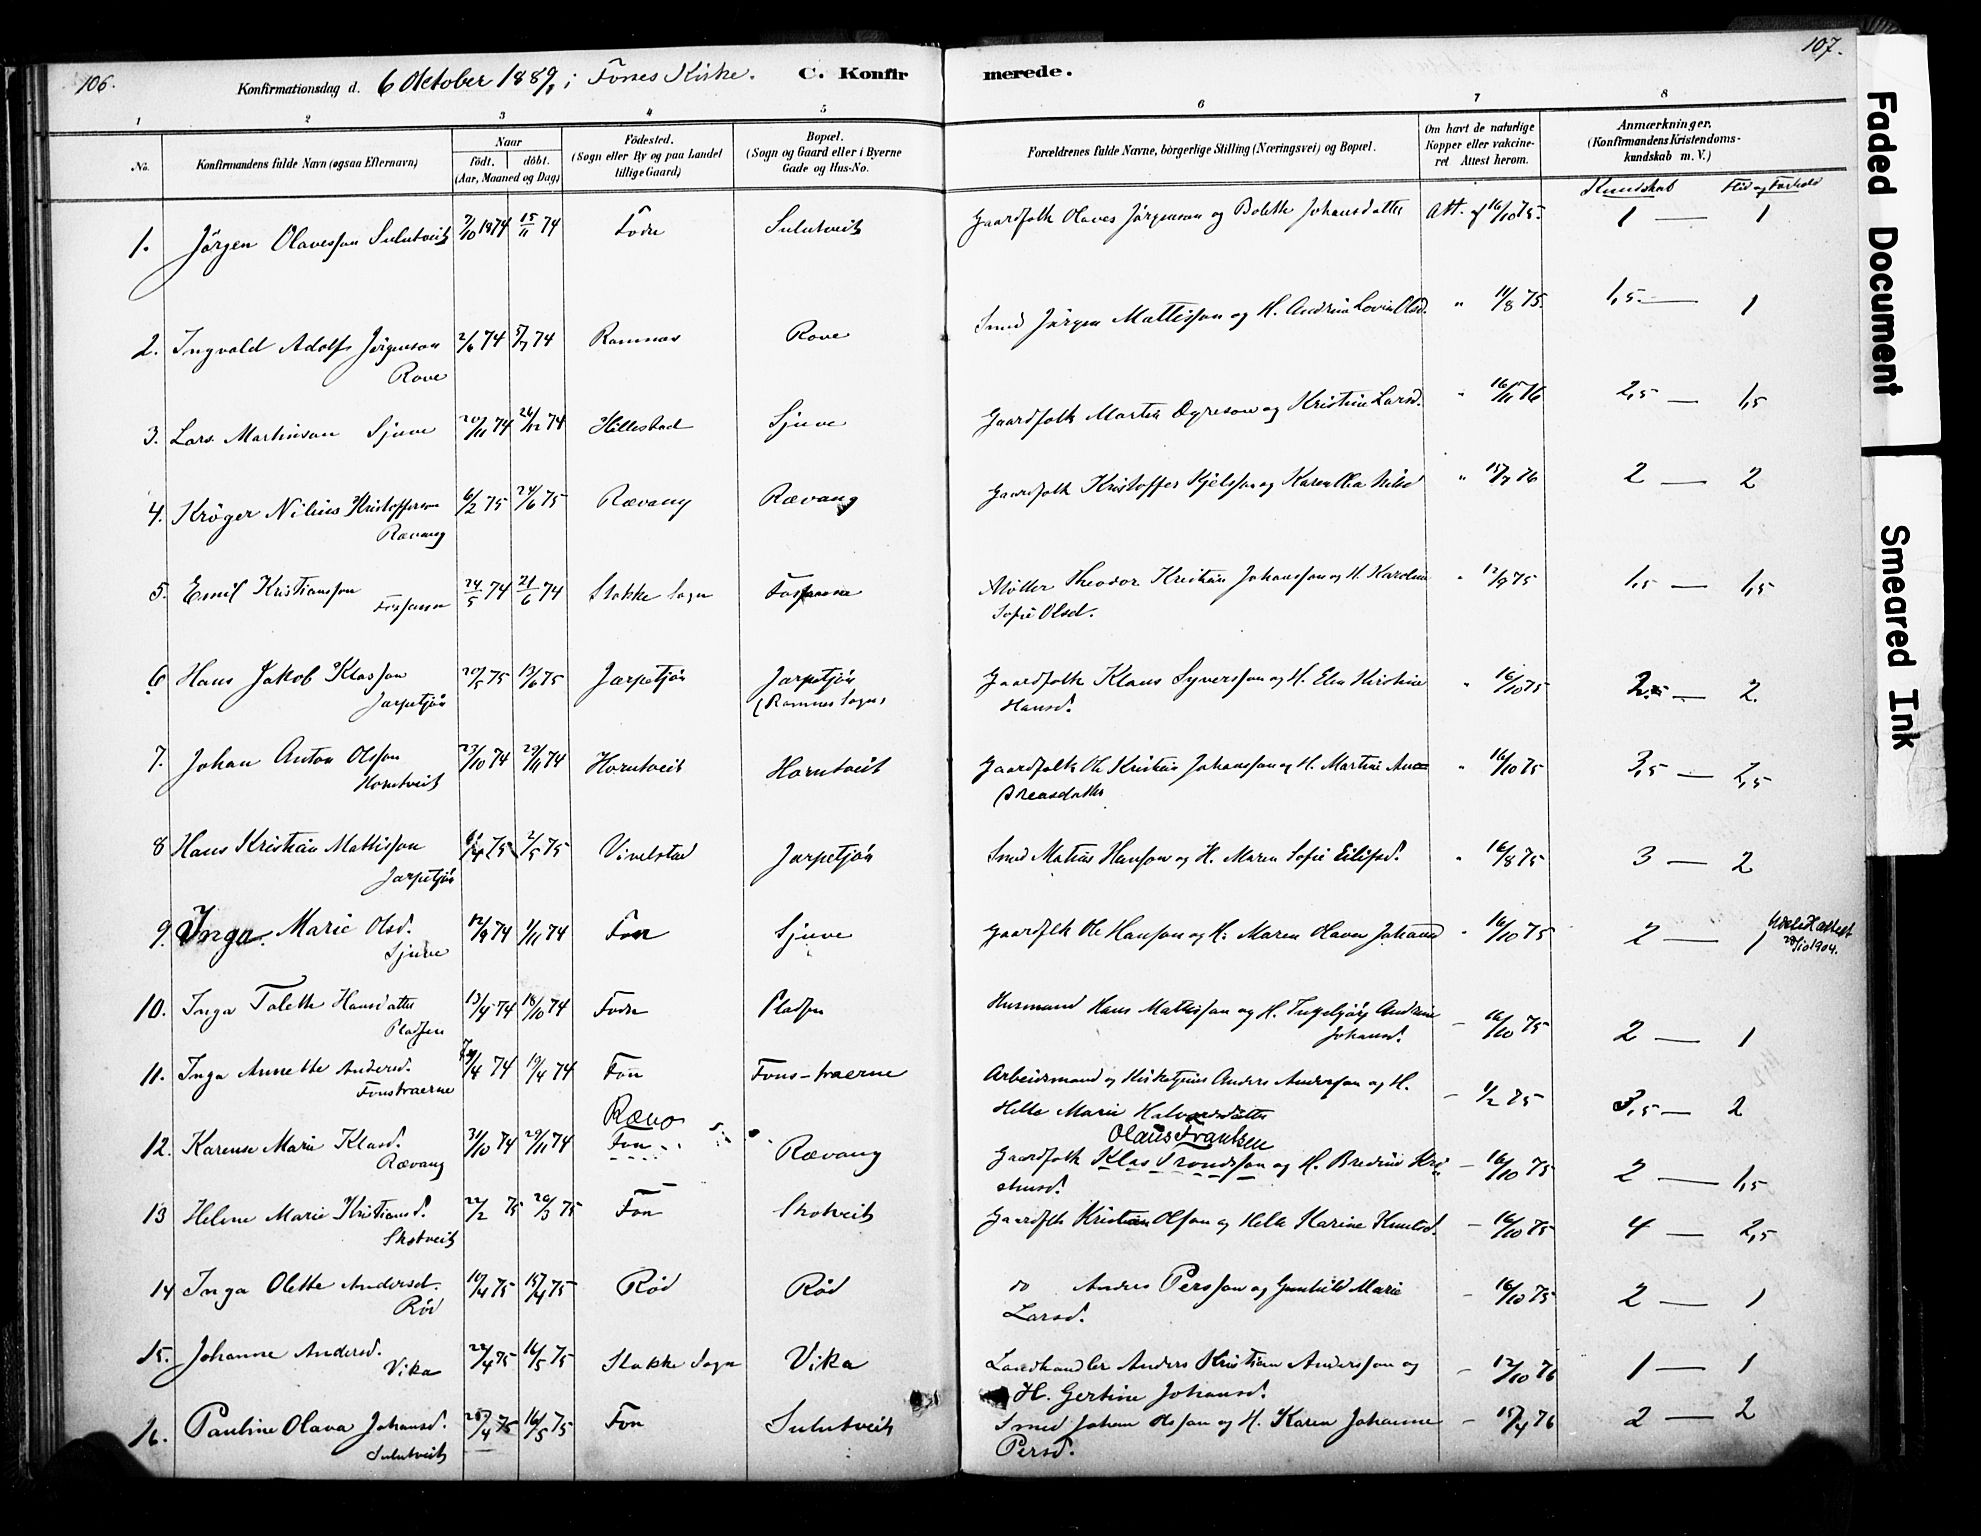 106.
Konfirmationsdag d. 6 Oktober 1889, i Fones Kirke. C. Konfirmerede.
107.
1 2 3 4 5 6 7 8
No.
Konfirmandens fulde Navn (ogsaa Efternavn)
Naar
født. døbt.
(Aar, Maaned og Dag)
Fødested.
(Sogn eller By og paa Landet
tillige Gaard)
Bopæl.
(Sogn og Gaard eller i Byerne
Gade og Hus-No.
Forældrenes fulde Navne, borgerlige Stilling (Næringsvei) og Bopæl.
Om havt de naturlige
Kopper eller vakcine-
ret Attest herom.
Anmærkninger.
(Konfirmandens Kristendoms-
kundskab m. V.)
Kundskab Flid og Forhold
1. Jørgen Olavesson Sulutveit 7/10 1874 15/11 74 Fodn Sulutveit Gaardfolk Olaves Jørgenson og Bolette Johansdatter Att. af 16/10 75. 1 — 1
2. Ingvald Adolf Jørgenson 2/6 74 5/7 74 Ramnes Rove Smed Jørgen Mattisson og H. Andrine Lovise Olsd. " 11/8 75. 1,5 — 1
Rove
3. Lars Martinson Sjuve 20/11 74 26/12 74 Hillestad Sjuve Gaardfolk Martin og Kristine Larsd. " 16/11 76 2,5 — 1,5
4. Krøger Nilius Kristofferson 6/2 75 24/6 75 Rævang Rævang Gaardfolk Kristoffer Kjelsson og Karen Thea Nilsd " 15/7 76 2 — 2
Rævang
5. Emil Kristiansson 24/5 74 21/6 74 Stokke Sogn Fossane Møller Theodor Kristian Johansson og H. Karoline " 12/9 75 1,5 — 1,5
Fossane
Sofie Olsd.
6 Hans Jakob Klasson 20/5 75 13/6 75 Jarpetjøn Jarpetjøn Gaardfolk Klaus Syversson og H. Elen Kirstine " 16/10 75 2. — 2.
Jarpetjøn (Ramnes Sogn) Hansd.
7. Johan Anton Olsson 23/10 74 29/11 74 Horntveit Horntveit Gaardfolk Ole Kristian Johansson og H. Martine An- " 16/10 75 3,5 — 2,5
Horntveit dreasdatter
8 Hans Kristian Mattisson 6/4 75 2/5 75 Vivelstad Jarpetjøn Smed Matias Hansson og H. Maren Sofie Eilifsd. " 16/8 75 3 — 2
Jarpetjøn
9. Inga Marie Olsd. 12/9 74 1/11 74 Fon Sjuve Gaardfolk Ole Hansson og H. Maren Olava Johansd " 16/10 75 2 — 1 Udsted attest
Sjuve 28/10 1904.
10. Inga Talette Hansdatter 13/4 74 18/10 74 Fodn Pladsen Husmand Hans Mattisson og H. Ingebjørg Andrine — 16/10 75 2 — 1
Pladsen Johansd.
11. Inga Annette Andersd. /4 74 19/4 74 Fon Fons-traerne Arbeidsmand og Kirketjener Anders Andersson og H. — 1/2 75 3,5 — 2
Fonstraerne
Helle Marie Halvorsdatter
Rævo
Olaus Frantsen
12. Karense Marie Klasd. 31/10 74 29/11 74 Fon Rævang Gaardfolk Klas Trondsson og H. Bredine Kri — 16/10 75 2 — 1,5
Rævang stiansd.
13 Helene Marie Kristiansd. 22/2 75 20/3 75 Fon Skotveit Gaardfolk Kristian Olsson og Helle Karine Knutsd. — 16/10 75 4 — 2,5
Skotveit
14 Inga Olette Andersd. 10/4 75 15/4 75 Rød Rød do Anders Persson og Gunhild Marie — 16/10 75 2 — 1
Rød Larsd.
15. Johanne Andersd. 22/4 75 16/5 75 Stokke Sogn Vika Landhandler Anders Kristian Andersson og — 12/10 76 1 — 1
Vika H. Gertine Johansd.
16. Pauline Olava Johansd. 28/4 75 16/5 75 Fon Sulutveit Smed Johan Olsson og H. Karen Johanne — 15/4 76 2 — 2
Sulutveit Persd.
Faded Document
Smeared Ink